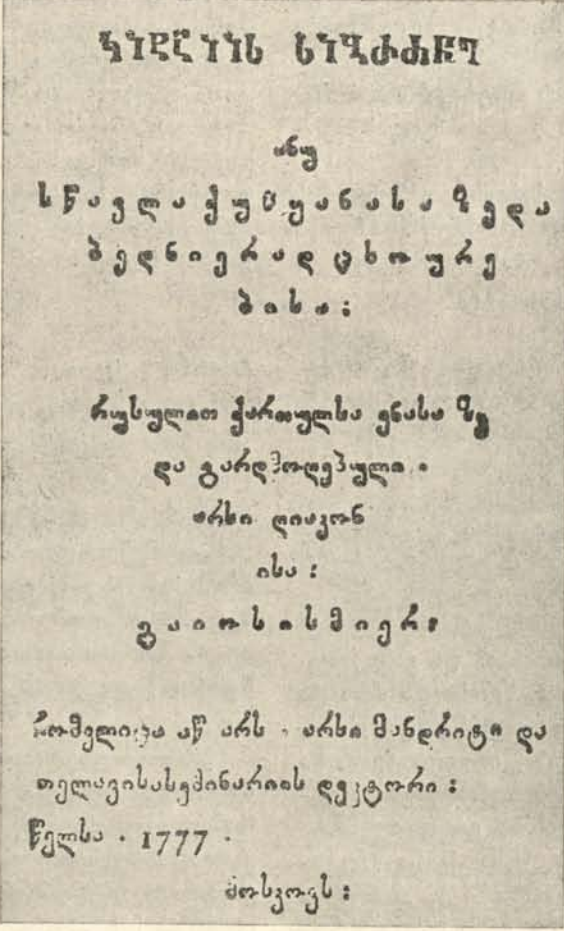 ႱႨႡႰႻႬႤ
ანუ
სწავლა ქუჱყანასა ზედა
ბედნიერად ცხოურე
ბისა :
რუსულით ქართულსა ენასა ზე
და გარდმოღებული .
არხი დიაკონ
ისა :
გაიოსის მიერ :
რომელიცა აწ არს , არხი მანდრიტი და
თელავისა სემინარიის რექტორი :
წელსა . 1777 .
მოსკოვს :